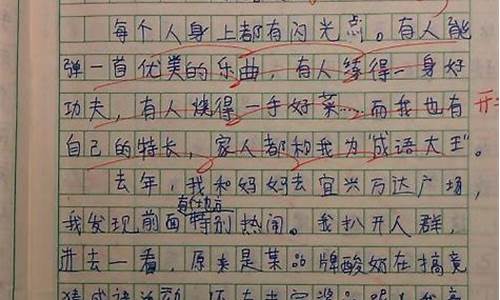 每个人身上都有闪光点。有人能
弹一首优美的乐曲，有人练得一身好
功夫，有人烧得一手好菜……而我也有
开
自己的特长，家人都称我为“成语大王”。
去年，我和妈妈去宜兴万达广场，
我发现前面特别热闹。我扒开人群，
进去一看，原来是某品牌酸奶在搞竞
猜成语活动